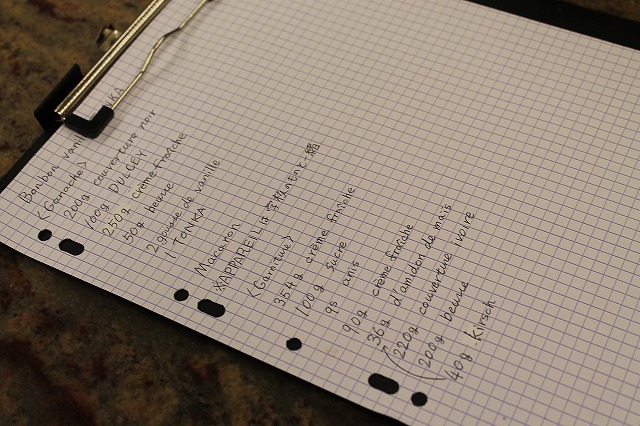 Bonbon vanille TONKA
<Ganache>
200g couverture noir
100g DULCEY
250g crème fraîche
50g beurre
2 gousse de vanille
1 TONKA
Macaron
※APPAREIL は
と一緒
<Garniture>
354g crème fraîche
100g sucre
9g anis
90g crème fraîche
36g d'amidon de maïs
220g couverture ivoire
200g beurre
40g kirsch